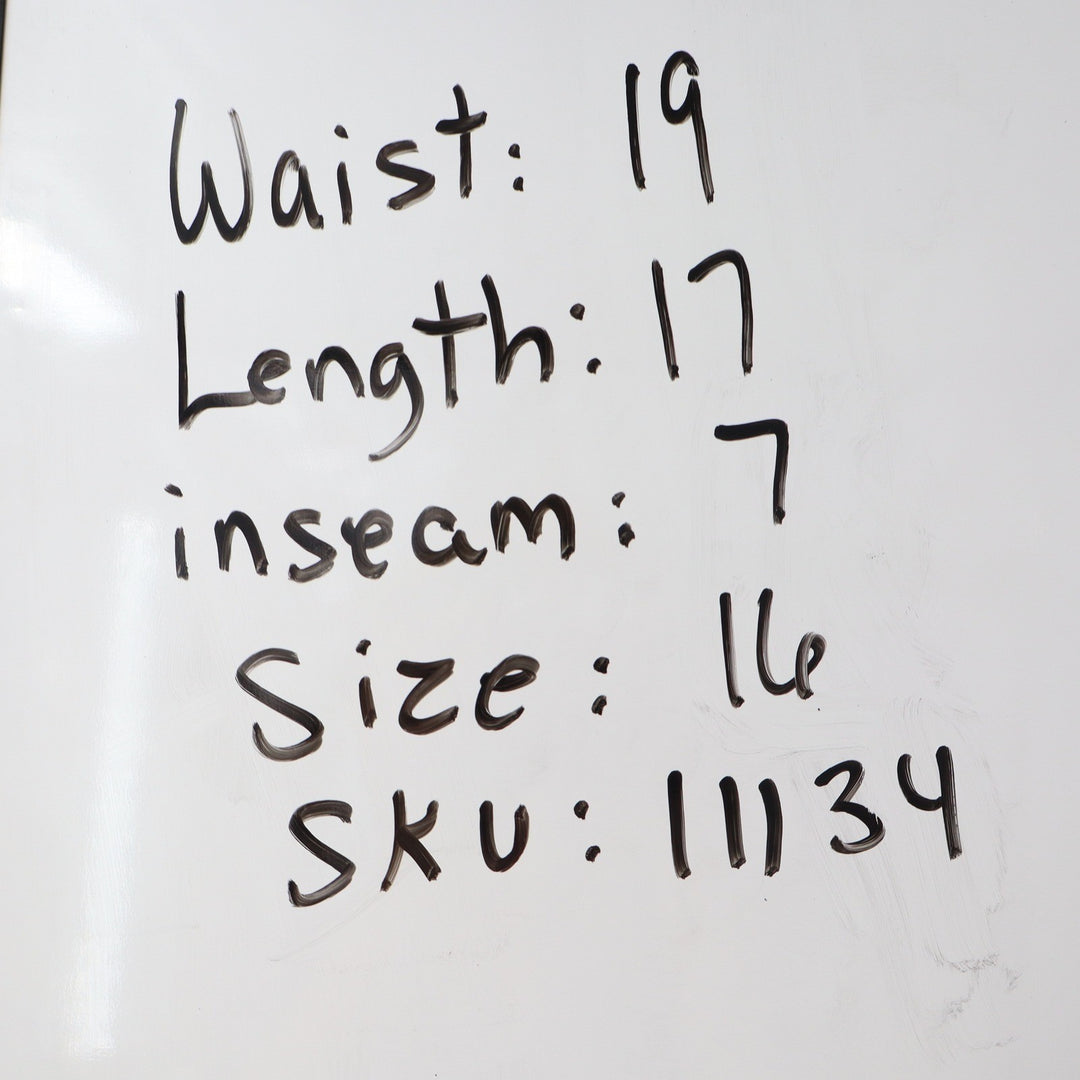 Waist: 19
Length: 17
inseam: 7
Size: 16
SKU: 11134